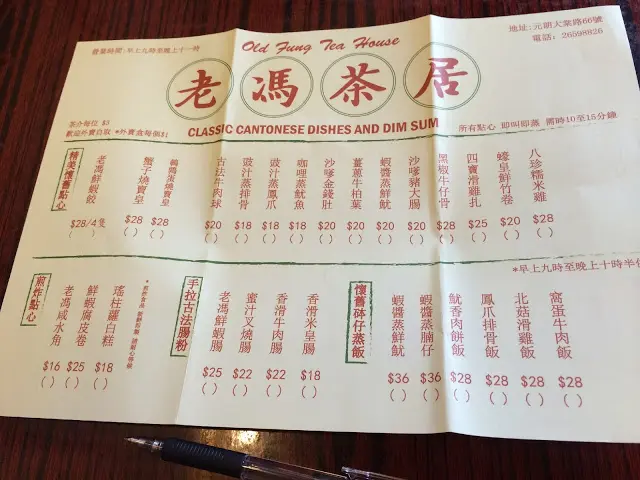 Old Fung Tea House
老馮茶居
CLASSIC CANTONESE DISHES AND DIM SUM
營業時間:早上九時至晚上十一時
地址:元朗大棠路66號
電話:26598826
茶介每位 $3
歡迎外賣自取 *外賣盒每個$1
所有點心 即叫即蒸 需時10至15分鐘
精美懷舊點心
老馮鮮蝦餃 $28/4隻 ( )
蟹子燒賣皇 $28 ( )
鵪鶉蛋燒賣皇 $28 ( )
古法牛肉球 $20 ( )
豉汁蒸排骨 $18 ( )
豉汁蒸鳳爪 $18 ( )
咖哩蒸魷魚 $18 ( )
沙嗲金錢肚 $20 ( )
薑蔥牛柏葉 $20 ( )
蝦醬蒸鮮魷 $20 ( )
沙嗲豬大腸 $20 ( )
黑椒牛仔骨 $28 ( )
四寶滑雞扎 $25 ( )
蠔皇鮮竹卷 $20 ( )
八珍糯米雞 $28 ( )
*早上九時至晚上十時半
煎炸點心
老馮咸水角 $16 ( )
鮮蝦腐皮卷 $25 ( )
瑤柱蘿白糕 $18 ( )
手拉古法腸粉
老馮鮮蝦腸 $25 ( )
蜜汁叉燒腸 $22 ( )
香滑牛肉腸 $22 ( )
香滑米皇腸 $18 ( )
懷舊砵仔蒸飯
蝦醬蒸鮮魷 $36 ( )
蝦醬蒸腩仔 $36 ( )
魷香肉餅飯 $28 ( )
鳳爪排骨飯 $28 ( )
北菇滑雞飯 $28 ( )
窩蛋牛肉飯 $28 ( )